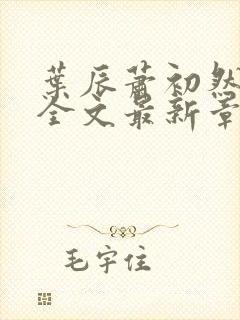 葉辰蕭初然
全文最新章
毛宇住